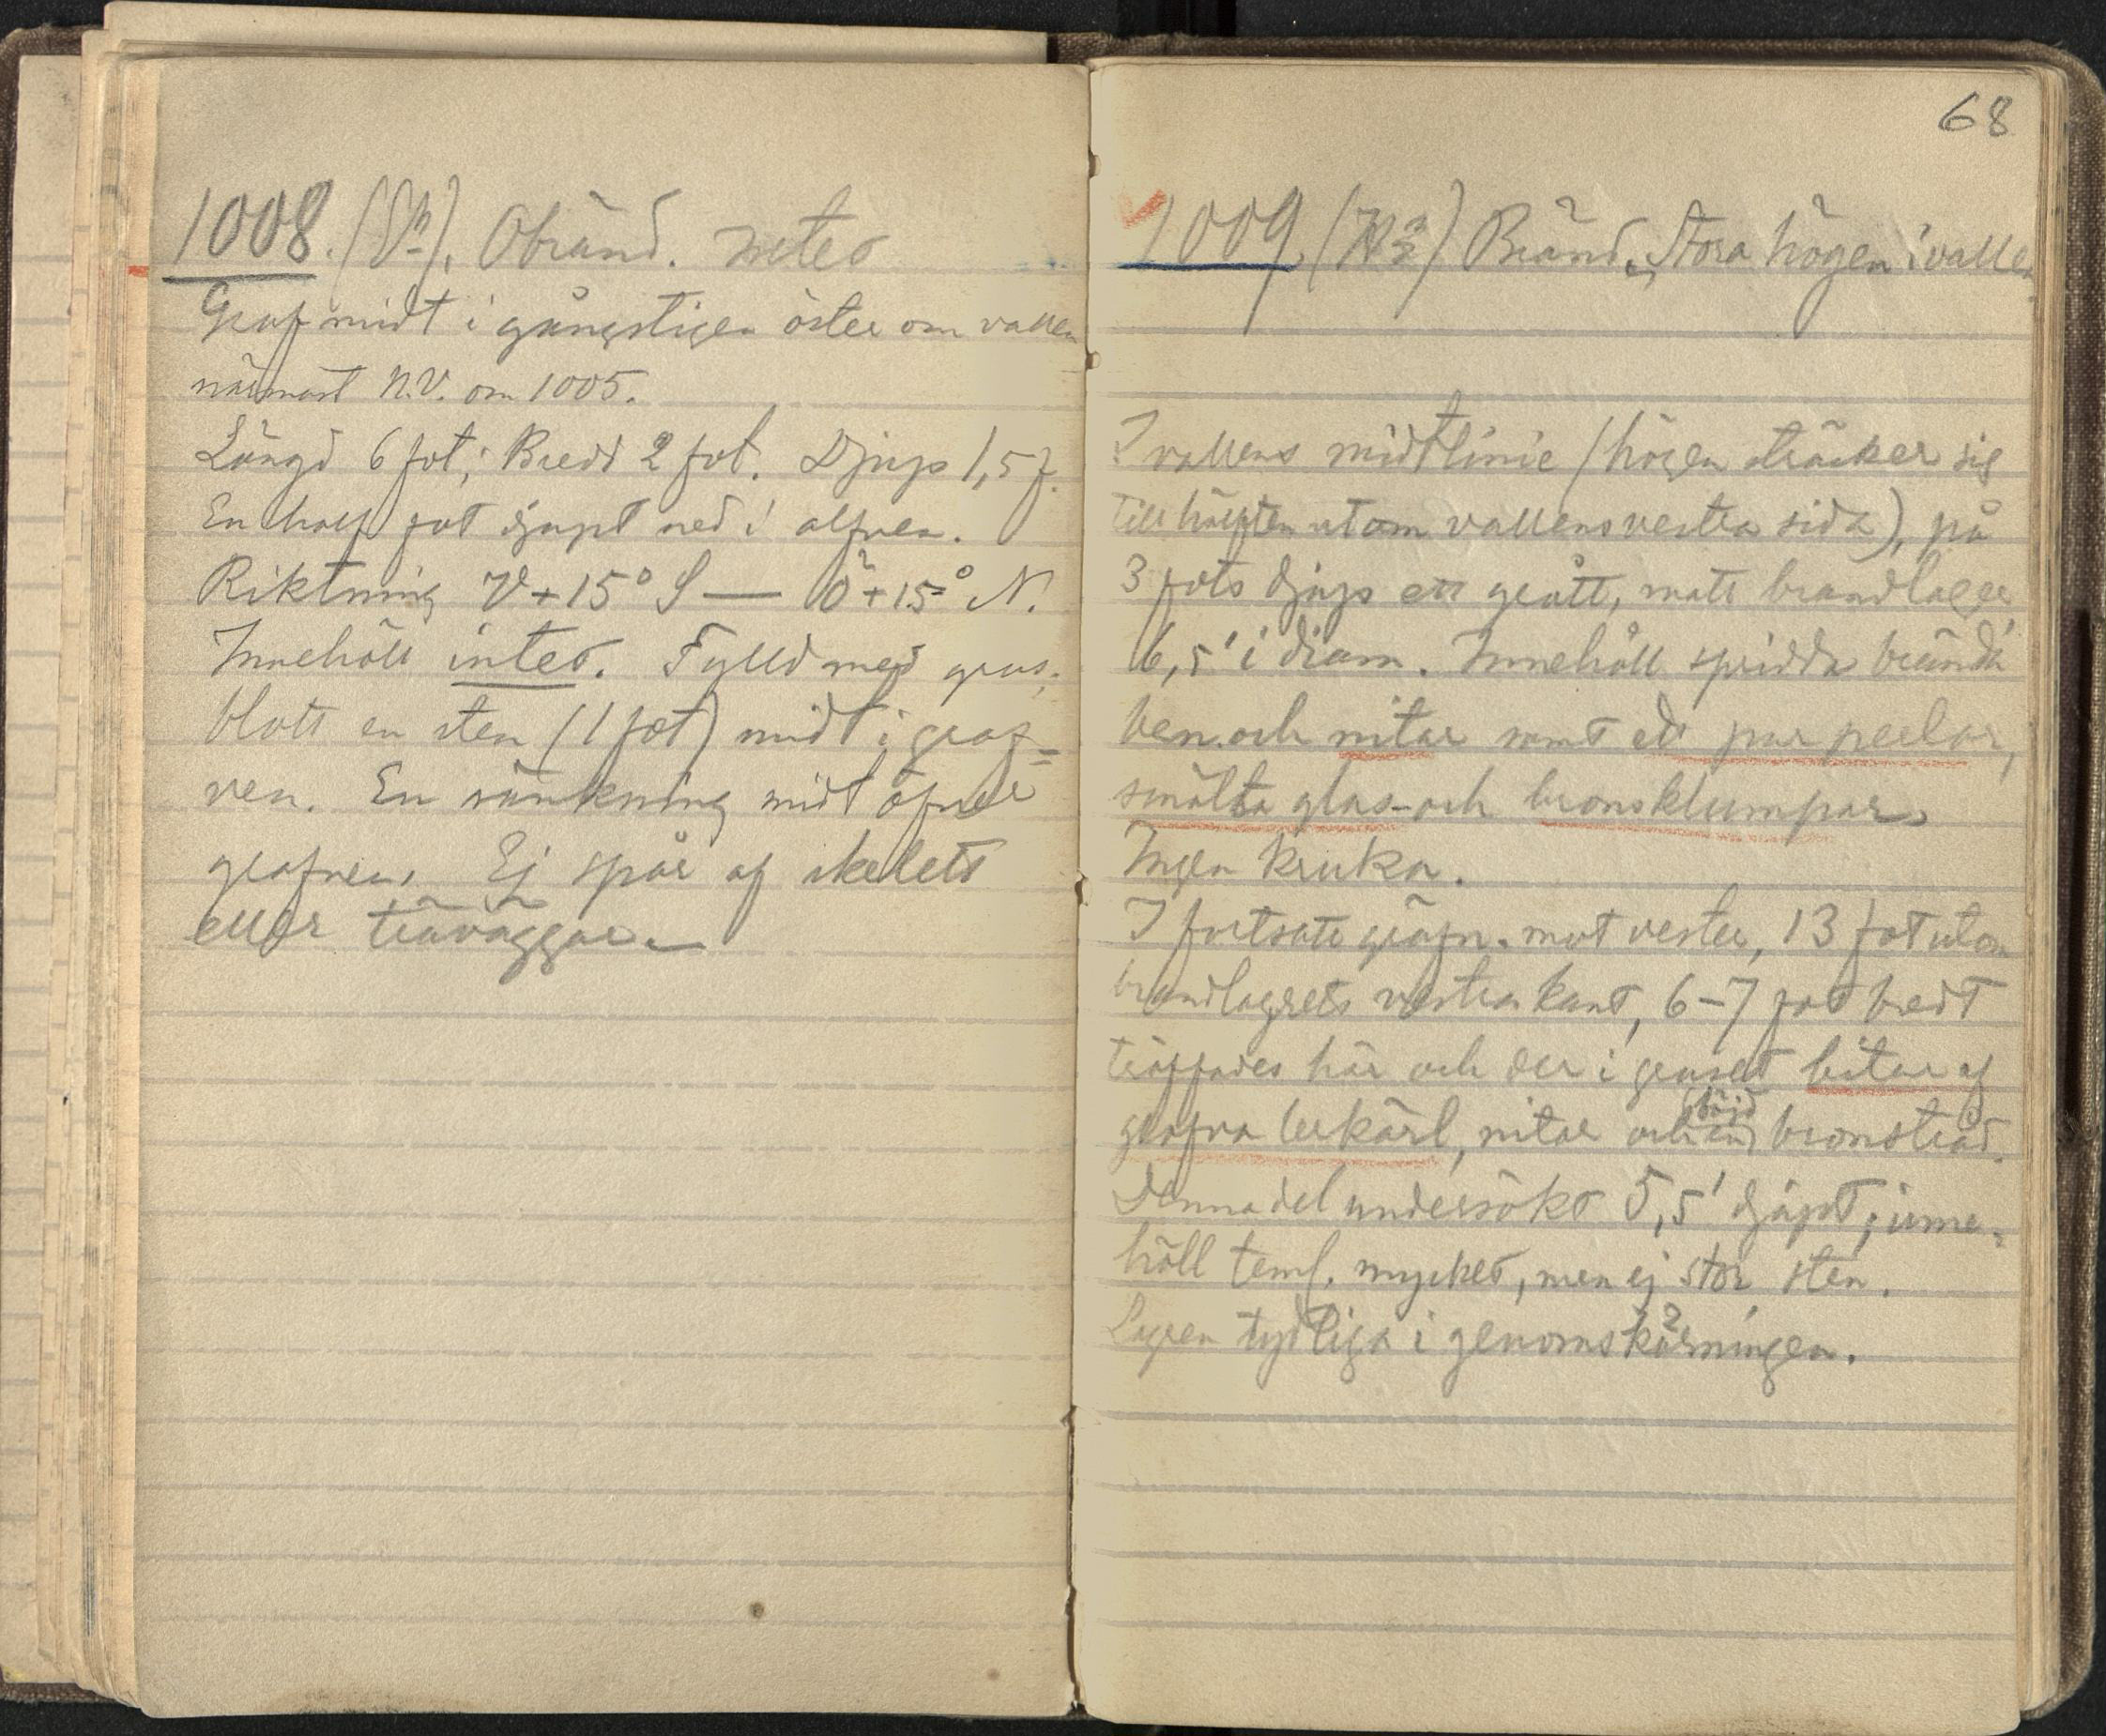 1008. (S.). Obränd. intet
Graf midt i gångstigen öster om vallen
närmast N.V. om 1005.
Längd 6 fot; Bredd 2 fot. Djup 1,5 f.
En half fot djupt ned i alfven.
Riktning V+15° S — Ö+15° N.
Innehöll intet. Fylld med grus,
blott en sten (1 fot) midt i graf=
ven. En sänkning midt öfver
grafven. Ej spår af skelett
eller träväggar.
68
1009. Bränd. Stora högen i vallen
I vallens midtlinie (högen sträcker sig
till hälften utom vallens vestra sida), på
3 fots djup ett grått, matt brandlager,
6,5' i diam. Innehöll spridda brända
ben och nitar samt ett par perlor,
smälta glas- och bronsklumpar.
Ingen kruka.
I fortsatt gräfn. mot vester, 13 fot utom
brandlagrets vestra kant, 6–7 fot bredt
träffades här och der i gruset bitar af
grofva lerkärl, nitar och en böjd bronstråd.
Denna del undersökt 5,5' djupt; inne-
höll teml. mycket, men ej stor sten.
Lagren tydliga i genomskärningen.